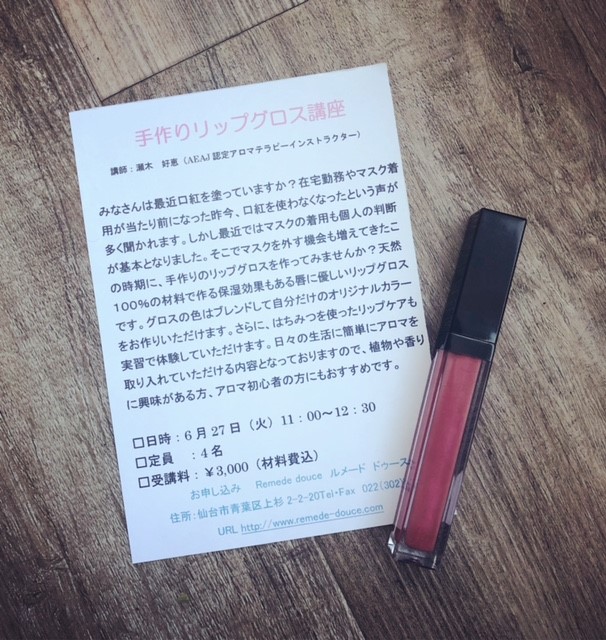 手作りリップグロス講座
講師：瀬木 好恵（AEAJ認定アロマテラピーインストラクター）
みなさんは最近口紅を塗っていますか？在宅勤務やマスク着
用が当たり前になった昨今、口紅を使わなくなったという声が
多く聞かれます。しかし最近ではマスクの着用も個人の判断
が基本となりました。そこでマスクを外す機会も増えてきたこ
の時期に、手作りのリップグロスを作ってみませんか？天然
100％の材料で作る保湿効果もある唇に優しいリップグロス
です。グロスの色はブレンドして自分だけのオリジナルカラー
をお作りいただけます。さらに、はちみつを使ったリップケアも
実習で体験していただけます。日々の生活に簡単にアロマを
取り入れていただける内容となっておりますので、植物や香り
に興味がある方、アロマ初心者の方にもおすすめです。
□日時：6月27日（火）11：00～12：30
□定員 ：4名
□受講料：￥3,000（材料費込）
お申し込み Remede douce ルメード ドゥース
住所：仙台市青葉区上杉 2-2-20Tel・Fax 022(302)
URL http://www.remede-douce.com